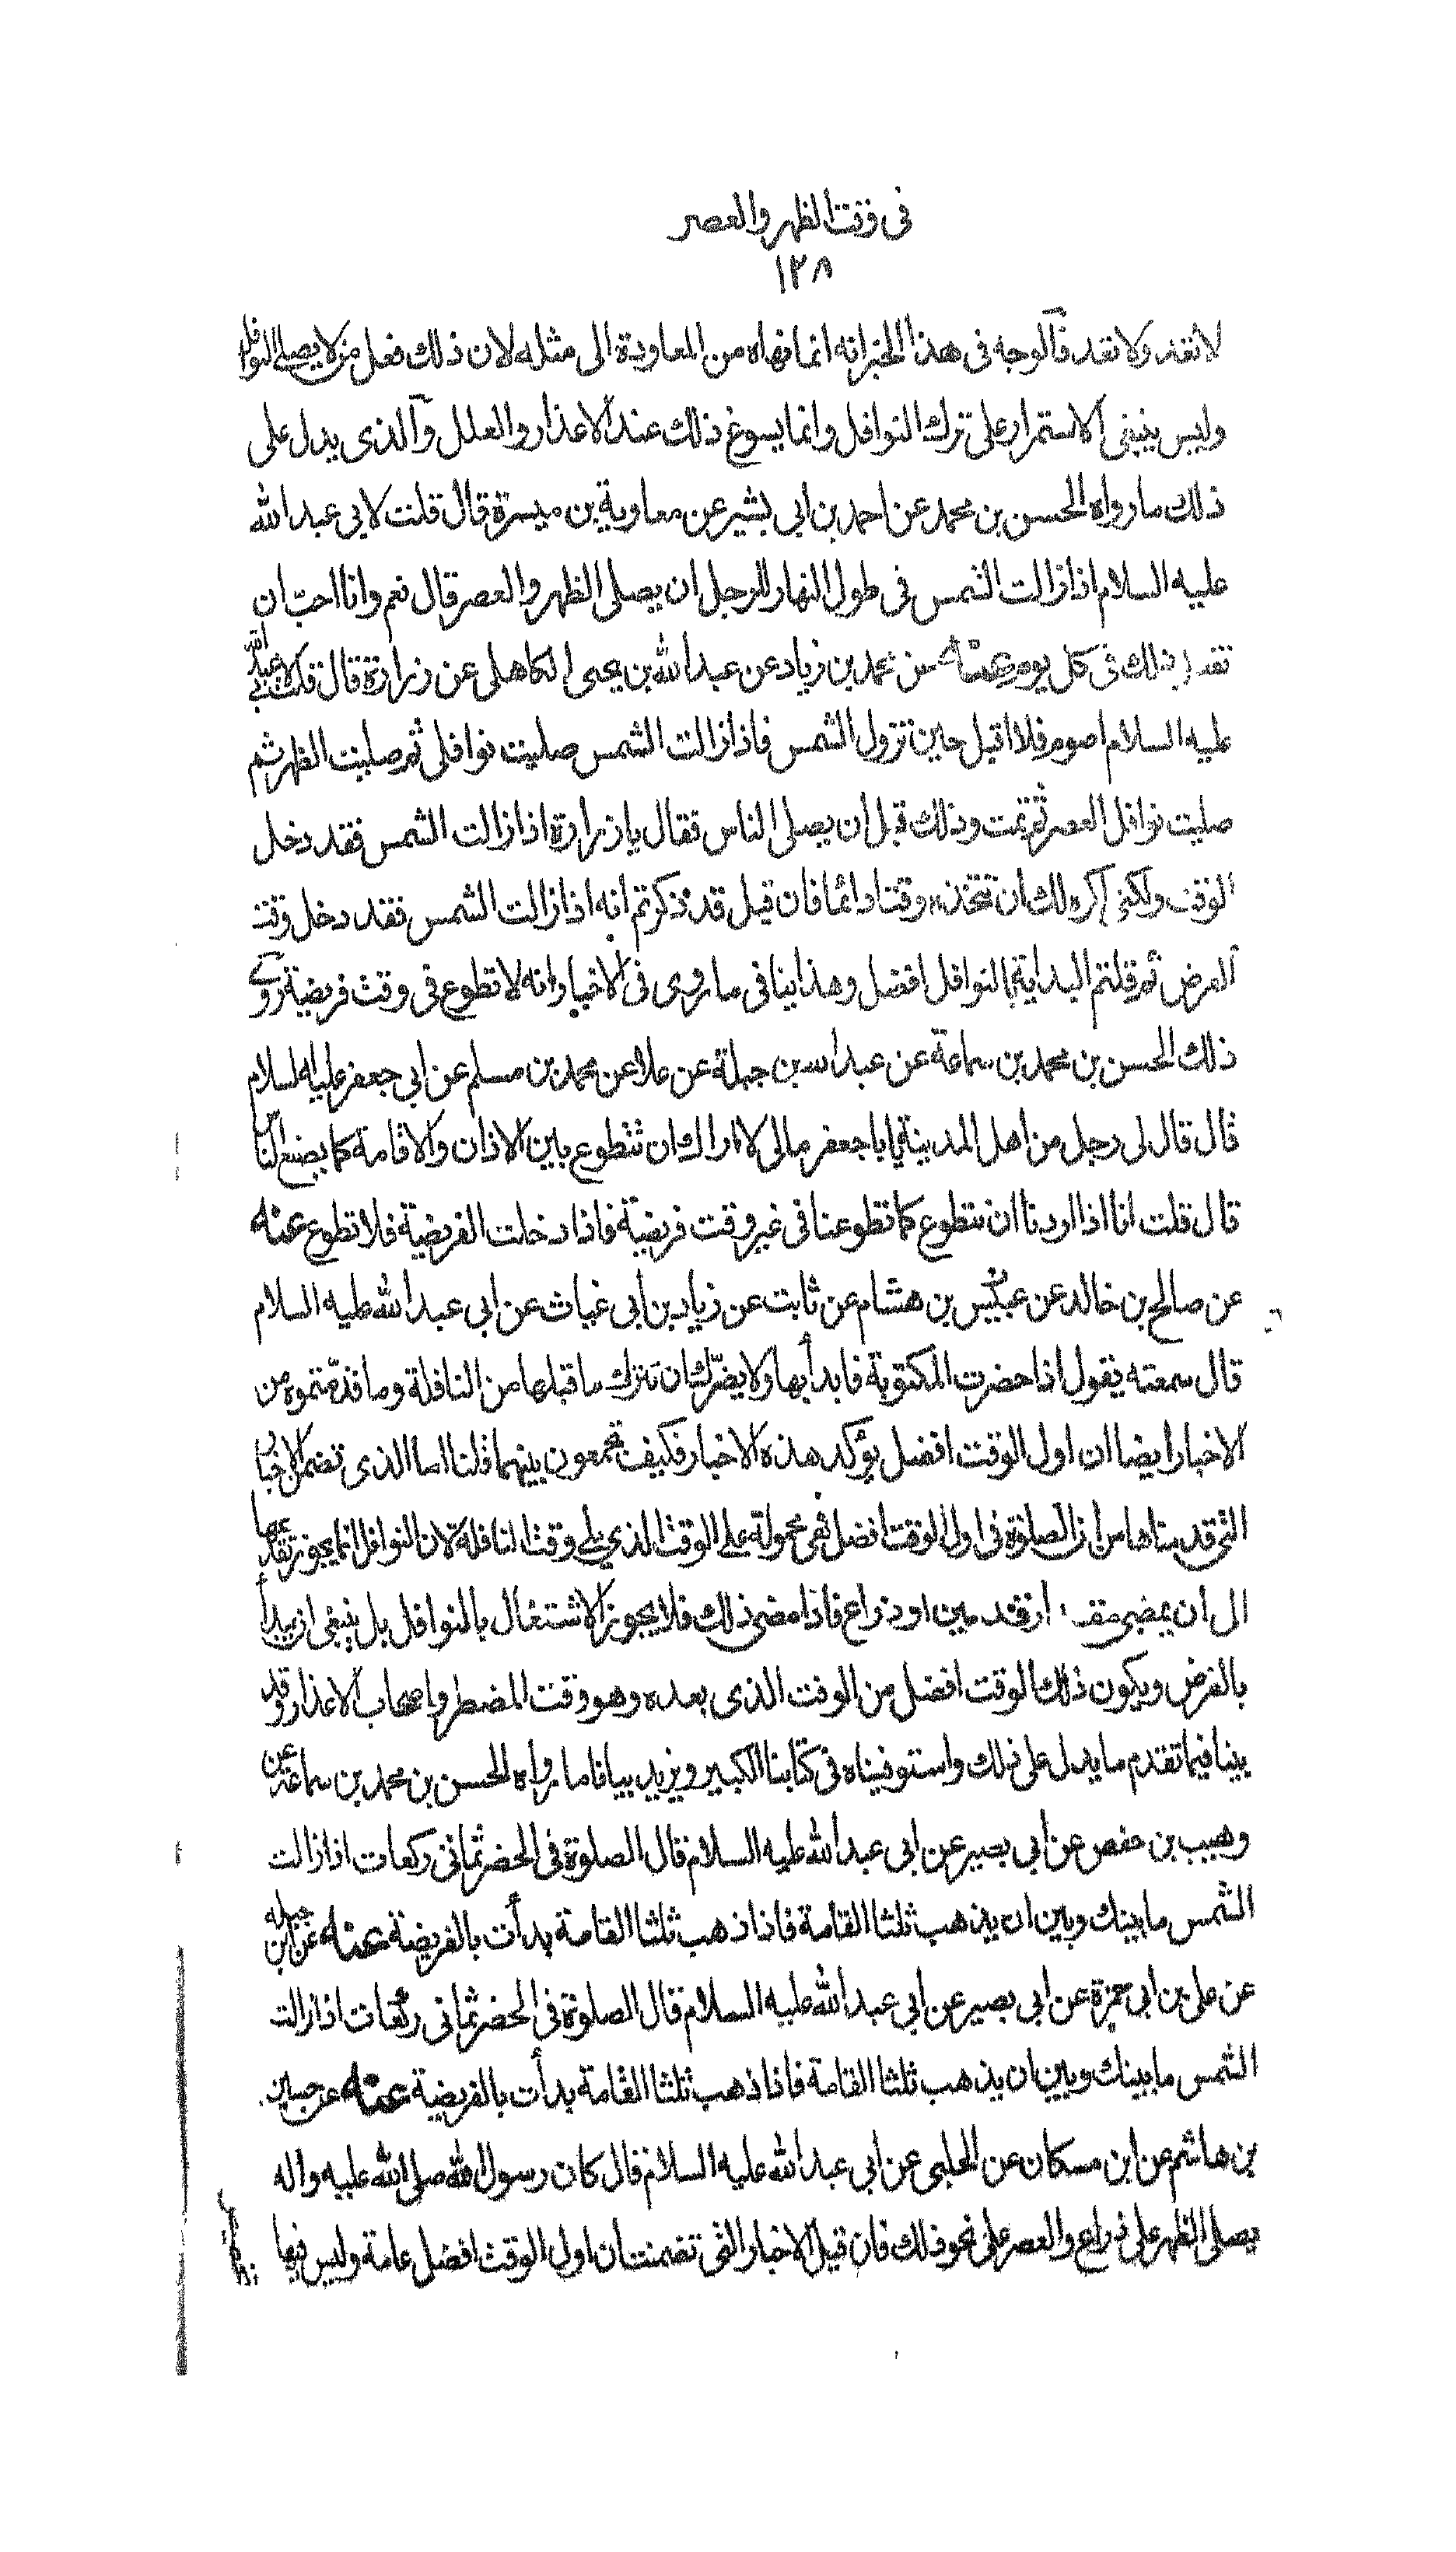 فى وقت الظهر والعصر
١٢٨
لا نعد ولا نعد فالوجه فى هذا الخبر انه انما نهاه من المعاودة الى مثله لان ذلك فعل من لا يصلى النوافل
وليس ينبغى الاستمرار على ترك النوافل وانما يسوغ ذلك عند الاعذار والعلل والذى يدل على
ذلك ما رواه الحسن بن محمد عن احمد بن ابى بشير عن معاوية بن ميسرة قال قلت لابى عبد الله
عليه السلام اذا زالت الشمس فى طول النهار للرجل ان يصلى الظهر والعصر قال نعم وانا احب ان
تفعل ذلك فى كل يوم عنه عن محمد بن زياد عن عبد الله بن يحيى الكاهلى عن زرارة قال قلت لابى عبد الله
عليه السلام اصوم فلا اقيل حين تزول الشمس فاذا زالت الشمس صليت نوافلى ثم صليت الظهر ثم
صليت نوافل العصر ثم نمت وذلك قبل ان يصلى الناس فقال يا زرارة اذا زالت الشمس فقد دخل
الوقت ولكنى اكره لك ان تتخذه وقتا دائما فان قيل قد ذكرتم انه اذا زالت الشمس فقد دخل وقت
الفرض ثم قلتم البداية بالنوافل افضل وهذا ينافى ما روى فى الاخبار انه لا تطوع فى وقت فريضة روى
ذلك الحسن بن محمد بن سماعة عن عبد الله بن جبلة عن علا عن محمد بن مسلم عن ابى جعفر عليه السلام
قال قال لى رجل من اهل المدينة يا ابا جعفر مالى لا اراك ان تتطوع بين الاذان والاقامة كما يصنع الناس
قال قلت انا اذا اردنا ان نتطوع كان تطوعنا فى غير وقت فريضة فاذا دخلت الفريضة فلا تطوع عنه
عن صالح بن خالد عن عبيس بن هشام عن ثابت عن زياد بن ابى غياث عن ابى عبد الله عليه السلام
قال سمعته يقول اذا حضرت المكتوبة فابدأ بها ولا يضرك ان تترك ما قبلها من النافلة وما قدمتموه من
الاخبار ايضا ان اول الوقت افضل يؤكد هذه الاخبار فكيف تجمعون بينهما قلنا اما الذى تضمن الاخبار
التى قدمناها من ان الصلوة فى اول الوقت افضل فهى محمولة على الوقت الذى يلى وقت النافلة لان النوافل انما يجوز تقديمها
الى ان يمضى مقدار قدمين او ذراع فاذا مضى ذلك فلا يجوز الاشتغال بالنوافل بل ينبغى ان يبدأ
بالفرض ويكون ذلك الوقت افضل من الوقت الذى بعده وهو وقت المضطر واصحاب الاعذار وقد
بينا فيما تقدم ما يدل على ذلك واستوفيناه فى كتابنا الكبير ويزيد بيانا ما رواه الحسن بن محمد بن سماعة عن
وهيب بن حفص عن ابى بصير عن ابى عبد الله عليه السلام قال الصلوة فى الحضر ثمانى ركعات اذا زالت
الشمس ما بينك وبين ان يذهب ثلثا القامة فاذا ذهب ثلثا القامة بدأت بالفريضة عنه عن ابن جبلة
عن على بن ابى حمزة عن ابى بصير عن ابى عبد الله عليه السلام قال الصلوة فى الحضر ثمانى ركعات اذا زالت
الشمس ما بينك وبين ان يذهب ثلثا القامة فاذا ذهب ثلثا القامة بدأت بالفريضة عنه عن حسين
بن هاشم عن ابن مسكان عن الحلبى عن ابى عبد الله عليه السلام قال كان رسول الله صلى الله عليه واله
يصلى الظهر على ذراع والعصر على نحو ذلك فان قيل الاخبار التى تضمنت ان اول الوقت افضل عامة وليس فيها